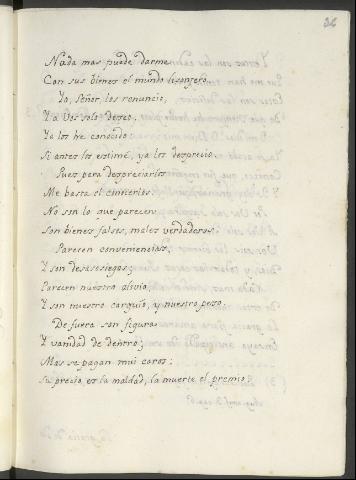 36
Nada mas puede darme
Con sus bienes el mundo lisongero.
Yo, Señor, los renuncio,
Y a Vos solo deseo,
Ya los he conocido
Si antes los estimé, ya los desprecio.
Pues para despreciarlos
Me basta el conocerlos.
No son lo que parecen
Son bienes falsos, males verdaderos:
Parecen conveniencias,
Y son desasosiegos;
Parecen nuestro alivio,
Y son nuestro carguío, y nuestro peso.
De fuera son figura
Y vanidad de dentro;
Mas se pagan mui caros;
Su precio, es la maldad, la muerte el premio.